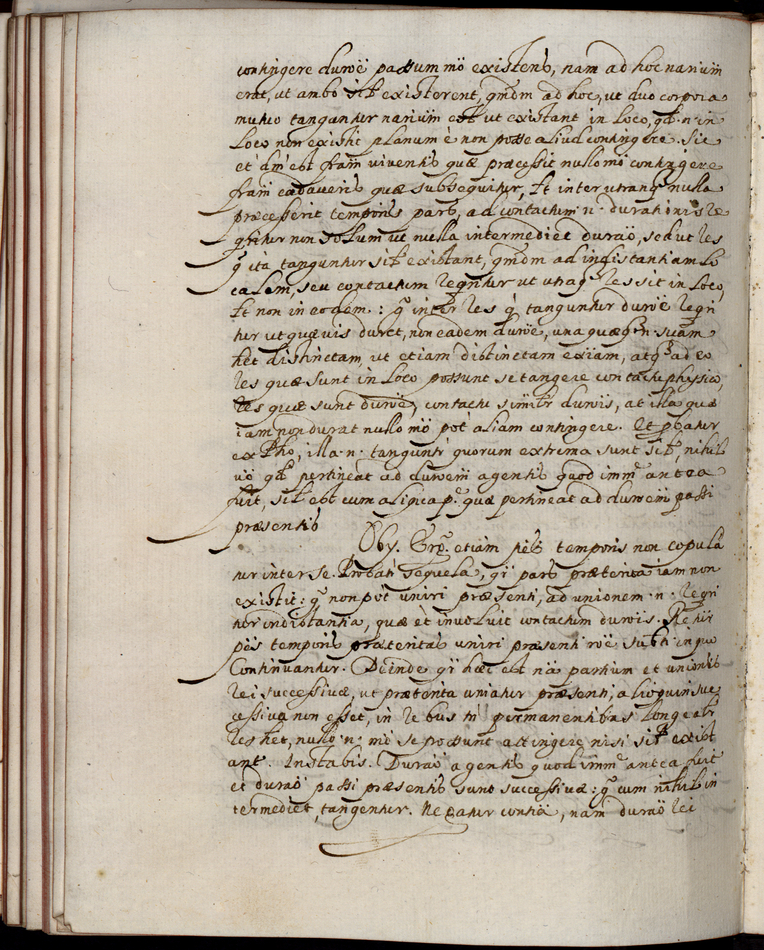 contingere durõe passum mõ existens, nam ad hoc narium
erat, ut ambo sil existerent, qmdm ad hoc, ut duo corpora
mutuo tangantur narium est ut existant in loco, qd n in
loco non existit planum è non posse aliud contingere. Sic
et dm est fram viventis quæ præcessit nullo mõ contingere
fram cadaveris quæ subsequitur, et inter utranq nulla
præcesserit temporis pars, ad contactum n. durationis re
qritur non solum ut nulla intermediet duraõ, sed ut res
q ita tanguntur sil existant, qmdm ad indistantiam lo
calem, seu contactum reqritur ut utraq res sit in loco,
et non in eodem: q inter res q tanguntur durõe reqri
tur ut quævis duret, non eadem durõe, una quæq n suam
het distinctam, ut etiam distinctam exiam, atq adeo
res quæ sunt in loco possunt se tangere contactu physico,
res quæ sunt durõe, contactu similr durõis, at illa quæ
iam non durat nullo mõ pot aliam contingere. Et pbatur
ex Pho, illa n. tanguntr quorum extrema sunt sil, nihil
vò qd pertineat ad durõem agentis quod imm antea
fuit, sil est cum aliqua pe quæ pertineat ad durõem passi
præsentis
Obj. Erg etiam ptes temporis non copula
tur inter se. Probatr sequela, qi pars præterita iam non
existit: q non pot uniri præsenti, ad unionem n. reqri
tur indistantia, quæ èt involuit contactum durõis. Re tur
ptes temporis præteritas uniri præsenti rõe subti in quo
continuantur. Deinde qi hæc est na partium et unionis
rei successivæ, ut præterita uniatur præsenti, alioquin suc
cessiva non esset, in rebus tn permanentibus longe alr
res het, nullo n. mõ se possunt attingere nisi sil exist
ant. Instabis. Duraõ agentis quod imm antea fuit
et duraõ passi præsentis sunt successivæ: q cum nihil in
termediet, tangentur. Negatur contia, nam duraõ rei